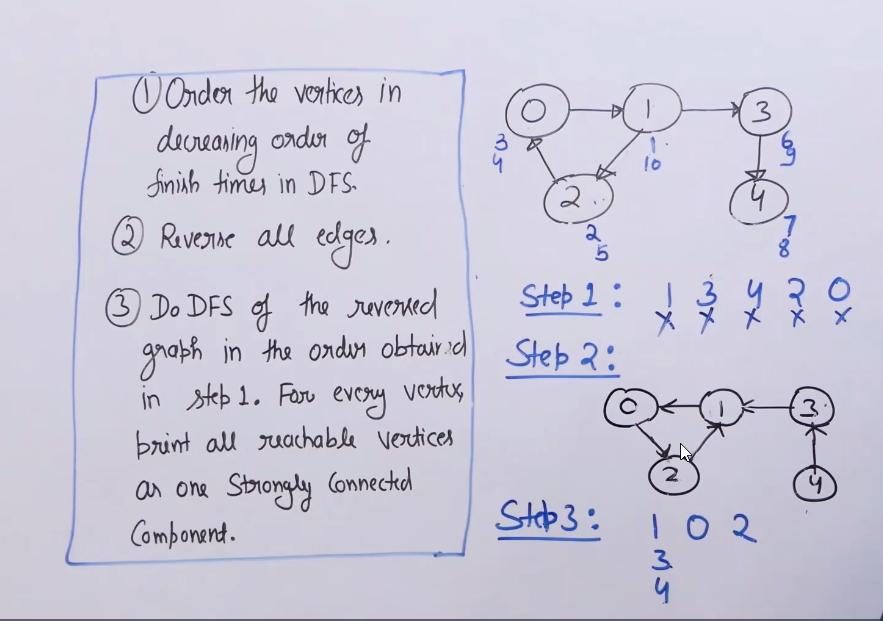 ① Order the vertices in
decreasing order of
finish times in DFS.
② Reverse all edges.
③ Do DFS of the reversed
graph in the order obtained
in step 1. For every vertex,
print all reachable vertices
as one Strongly Connected
Component.
0 1 3
3 1 6
4 10 9
2 4
2 7
5 8
Step 1: 1 3 4 2 0
x x x x x
Step 2:
0 1 3
2 4
Step 3: 1 0 2
3
4